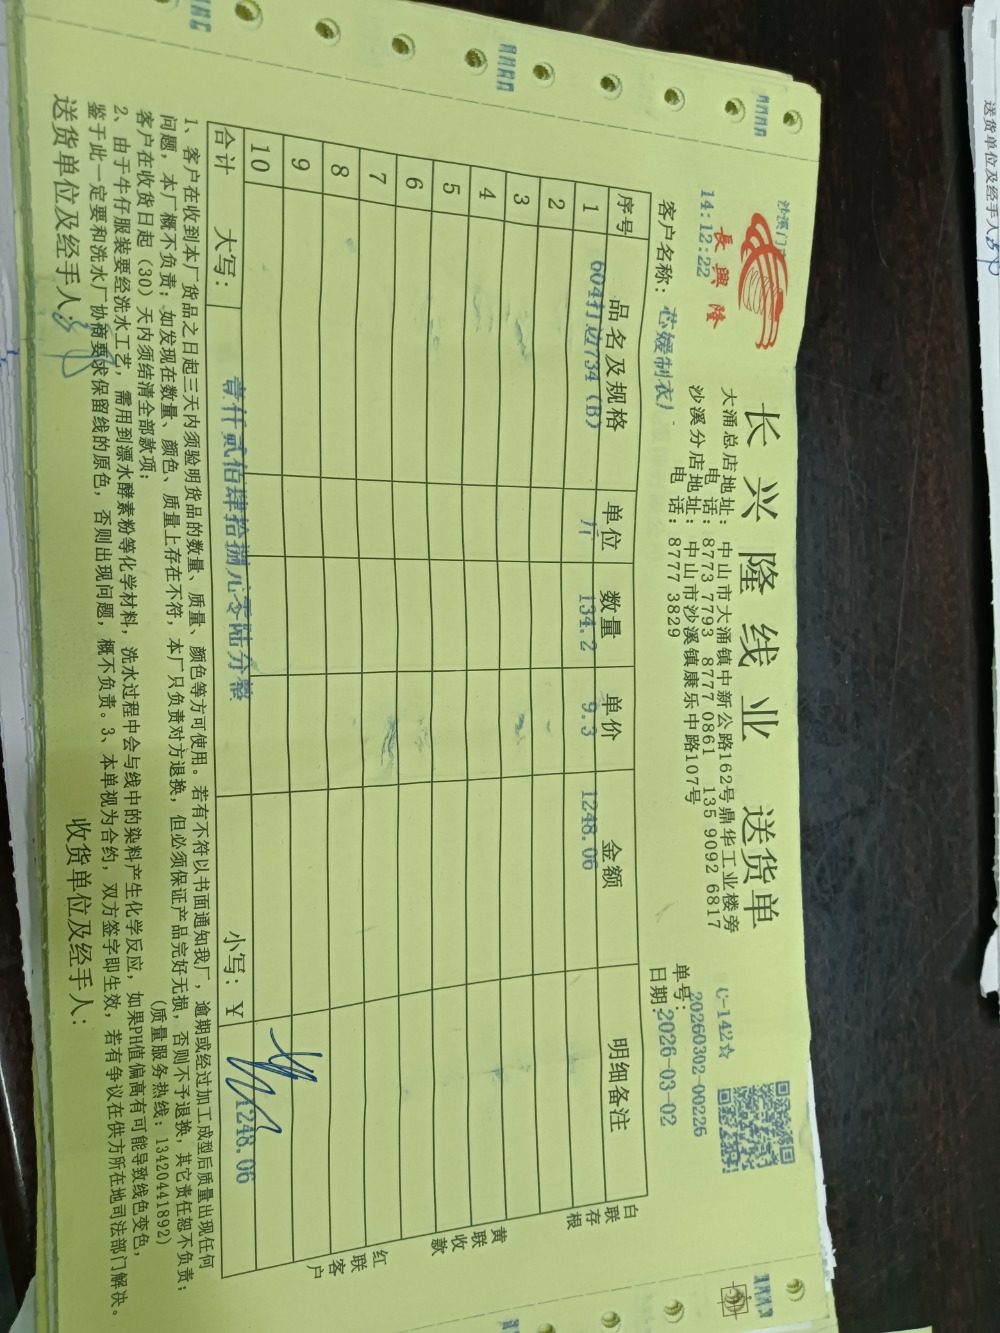 沙溪门
14:12:22
長興隆
长兴隆线业 送货单
大涌总店地址：中山市大涌镇中新公路162号鼎华工业楼旁
电 话：8773 7793 8777 0861 135 9092 6817
沙溪分店地址：中山市沙溪镇康乐中路107号
电 话：8777 3829
C-142☆
单号：20260302-00226
日期：2026-03-02
客户名称：芯媛制衣厂
序号 品名及规格 单位 数量 单价 金额 明细备注
1 604打边734（B） 斤 134.2 9.3 1248.06
2
3
4
5
6
7
8
9
10
合计 大写： 壹仟贰佰肆拾捌元零陆分整 小写：￥ 1248.06
白联存根
黄联收款
红联客户
1、客户在收到本厂货品之日起三天内须验明货品的数量、质量、颜色等方可使用。若有不符以书面通知我厂，逾期或经过加工成型后质量出现任何
问题，本厂概不负责；如发现在数量、颜色、质量上存在不符，本厂只负责对方退换，但必须保证产品完好无损，否则不予退换，其它责任恕不负责；
客户在收货日起（30）天内须结清全部款项； （质量服务热线：13420441892）
2、由于牛仔服装要经洗水工艺，需用到漂水酵素粉等化学材料，洗水过程中会与线中的染料产生化学反应，如果PH值偏高有可能导致线色变色，
鉴于此一定要和洗水厂协商要求保留线的原色，否则出现问题，概不负责。3、本单视为合约，双方签字即生效，若有争议在供方所在地司法部门解决。
送货单位及经手人： 收货单位及经手人：
送货单位及经手人